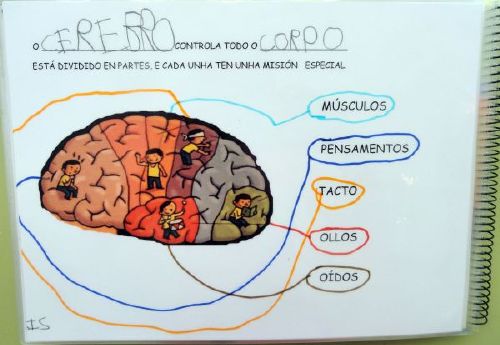 O CEREBRO CONTROLA TODO O CORPO
ESTÁ DIVIDIDO EN PARTES, E CADA UNHA TEN UNHA MISIÓN ESPECIAL
MÚSCULOS
PENSAMENTOS
TACTO
OLLOS
OÍDOS
IS